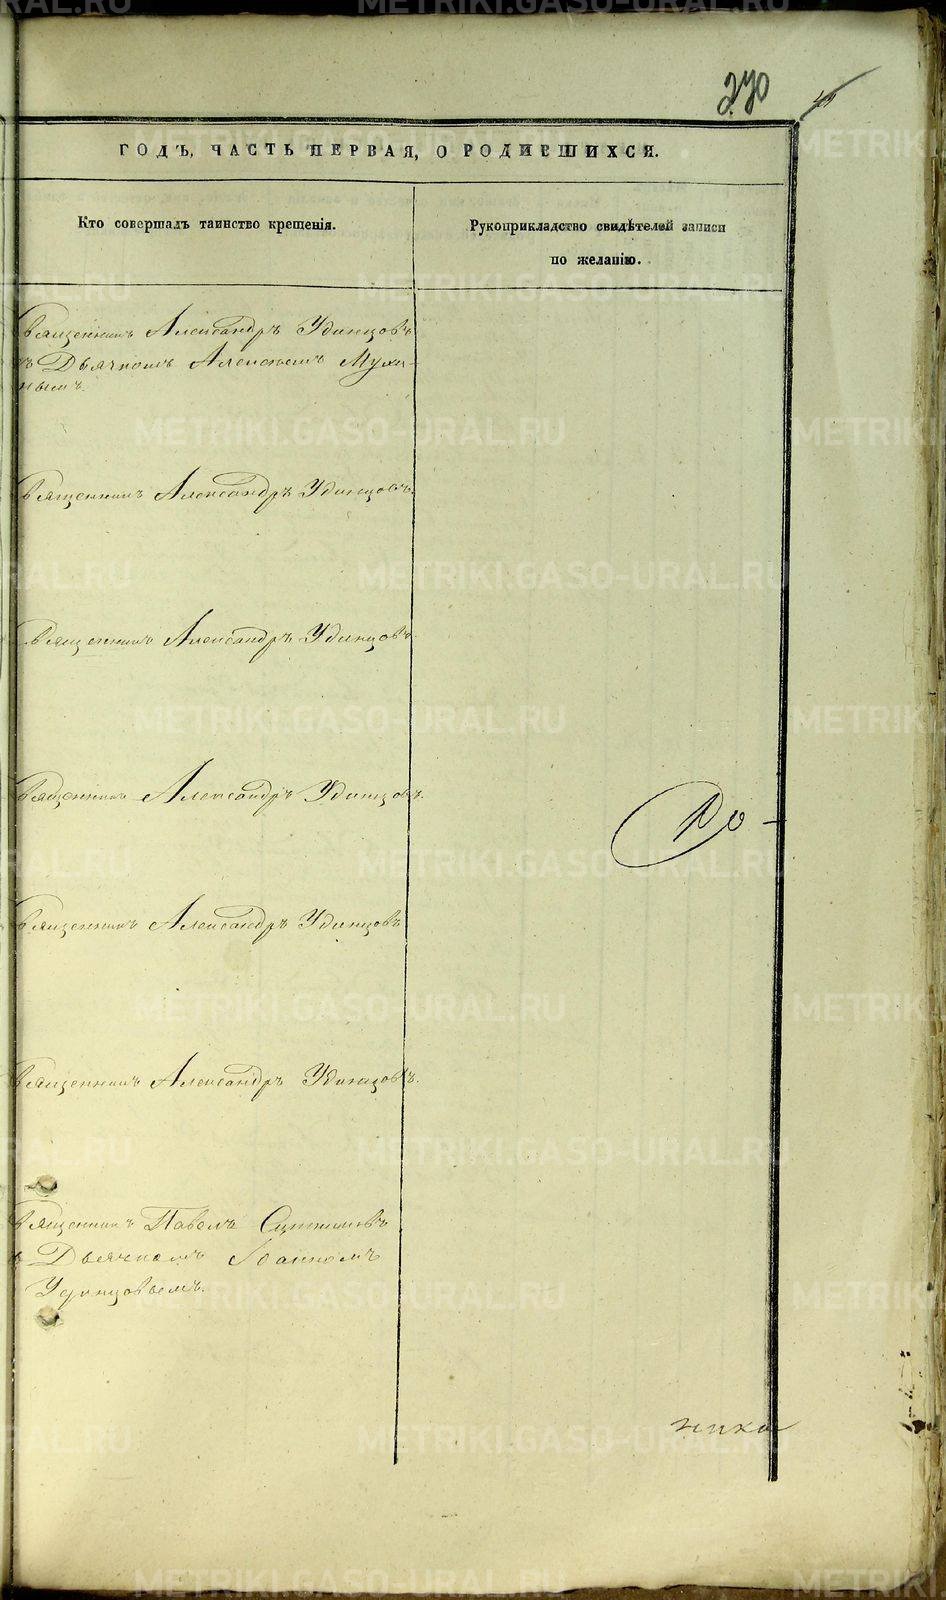 270
45
ГОДЪ, ЧАСТЬ ПЕРВАЯ, О РОДИВШИХСЯ.
Кто совершалъ таинство крещенія.
Рукоприкладство свидѣтелей записи
по желанію.
вященникъ Александръ Удинцовъ
ъ Дьячкомъ Алексѣемъ Мухи-
нымъ.
вященникъ Александръ Удинцовъ.
вященникъ Александръ Удинцовъ.
вященникъ Александръ Удинцовъ.
вященникъ Александръ Удинцовъ
вященникъ Александръ Удинцовъ.
вященникъ Павелъ
ъ Дьячкомъ Іоанномъ
Удинцовымъ.
METRIKI.GASO-URAL.RU